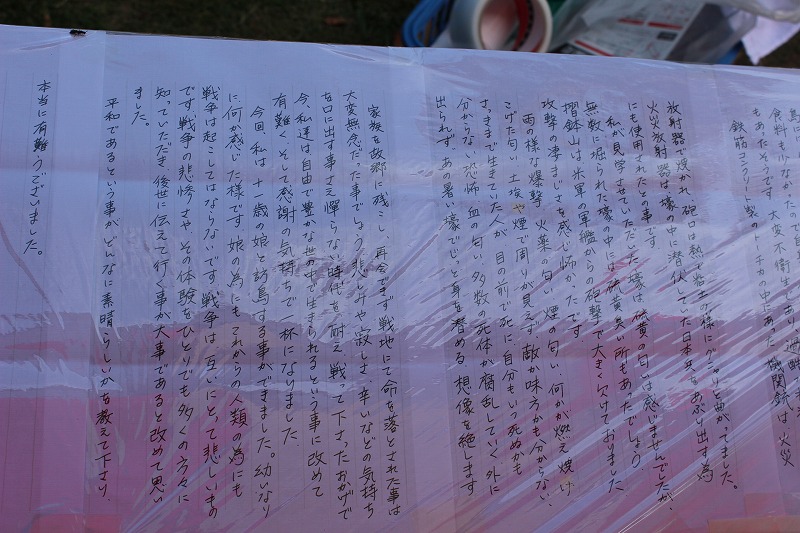 食料も少なかったので
もあったそうです。大変不衛生
鉄筋コンクリート製のトーチカの中にあった機関銃は、火炎
放射器で焼かれ、砲口は熱で粘土の様にグニャリと曲がってました。
火炎放射器は壕の中に潜伏していた日本兵をあぶり出す為
にも使用されたとの事です。
私が見学させていただいた壕は、硫黄の匂いは感じませんでしたが、
無数に掘られた壕の中には硫黄臭い所もあったでしょう。
摺鉢山は米軍の軍艦からの砲撃で大きく欠けておりました。
攻撃の凄まじさを感じ怖かったです。
雨の様な爆撃、火薬の匂い、煙の匂い、何かが燃え焼け
こげた匂い、土埃や煙で周りが見えず、敵か味方かも分からない、
さっきまで生きていた人が、目の前で死に、自分もいつ死ぬかも
分からない恐怖、血の匂い、多数の死体が腐乱していく、外に
出られず、あの暑い壕でじっと身を潜める、想像を絶します。
家族を故郷に残こし、再会できず、戦地にて命を落とされた事は
大変無念だった事でしょう。悲しみや寂しさ、辛いなどの気持ち
を口に出す事さえ憚らない時代を耐え、戦って下さったおかげで
今、私達は自由で豊かな世の中で生まれられるという事に改めて
有難く、そして感謝の気持ちで一杯になりました。
今回、私は、十一歳の娘と訪島する事ができました。幼いなり
に何か感じた様です。娘の為にもこれからの人類の為にも
戦争は起こしてはならないです。戦争は互いにとって悲しいもの
です。戦争の悲惨さやその体験をひとりでも多くの方々に
知っていただき、後世に伝えて行く事が大事であると改めて思い
ました。
平和であるという事がどんなに素晴らしいかを教えて下さり、
本当に有難うございました。